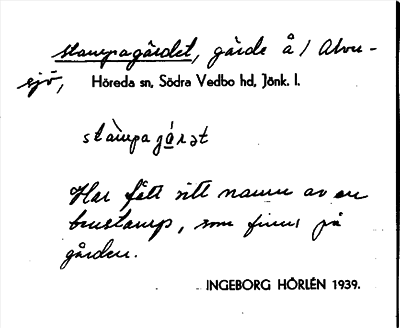 stampagärdet, gärde å / Alvu-
sjö, Höreda sn, Södra Vedbo hd, Jönk. l.
stàmpagárət
Har fått sitt namn av en
benstamp, som finns på
gården.
INGEBORG HÖRLÉN 1939.